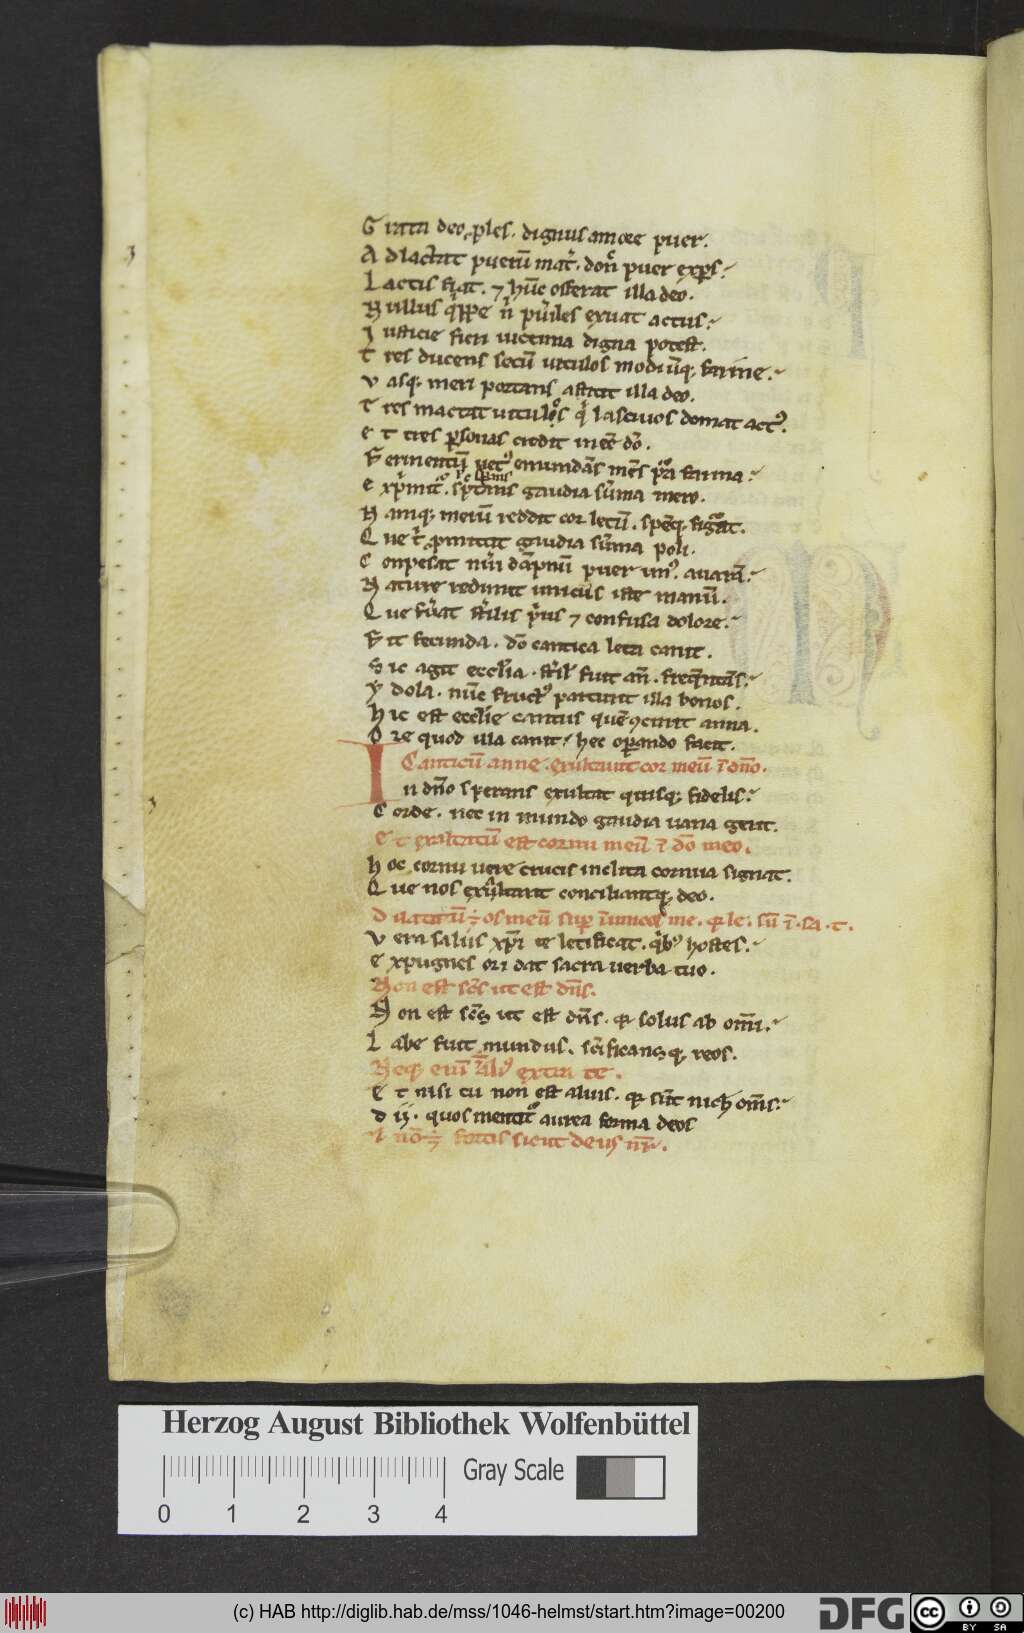 Grata deo ꝓles. dignus amore puer.
Adlactat pueru᷈ mat᷑. don᷑ puer exp̱s
Lactis fiat. ⁊ hu᷈c offerat illa deo.
Nullus q᷑ppe n᷑ pu᷑iles exuat actus
Iusticie fieri uictima digna potest.
Tres ducens secu᷈ uitulos modiu᷈q; farine.
Vasq; meri portans astitit illa deo.
Tres mactat uitulos q᷑ lasciuos domat act᷒.
Et tres p̱sonas credit inee᷈ do᷑.
exp᷑mit᷑. gaudia su᷈ma mero.
Namq; meru᷈ reddit cor letu᷈. speq; figurat.
Que t᷑ ꝓmittit gaudia su᷈ma poli.
Conpesat nu᷑i da᷈pnu᷈ puer un᷒. auara᷈
Nature redimit unicus iste manu᷈.
Que fu᷑at st᷑ilis p᷑us ⁊ confusa dolore.
Fit fecunda. do᷑ cantica leta canit.
Sic agit eccl᷑ia. st᷑il᷑ fuit an᷈.
Ydola. nu᷈c fruct᷒ parturit illa bonos.
Hic est eccl᷑ie cantus que᷈ ꝯcinit anna.
Ore quod illa canit hec oꝑando facit.
Canticu᷈ anne. exultauit cor meu᷈ i᷈ dn᷑o.
In dn᷑o sperans exultat quisq; fidelis
Corde. nec in mundo gaudia uana gerit.
Et exaltatu᷈ est cornu meu᷈ i᷈ do᷑ meo.
Hoc cornu uere crucis inclita cornua signat.
Que nos exu᷑ltant conciliantq; deo.
Dilatatu᷈ ÷ os meu᷈ sup̱ i᷈imicos me. q̱ le. su᷈ i᷈. sa. t.
Vera salus xp᷑i te letificat. q᷑b᷒ hostes.
Expugnes ori dat sacra uerba tuo.
Non est sc᷑s ut est dn᷑s.
Non est sc᷑s ut est dn᷑s. q̱ solus ab om᷑i.
Labe fuit mundus. sc᷑ificansq; reos.
Neq; eni᷈ al᷑i᷒ extra te.
Et nisi tu non est alius. q̱ su᷈t nich om᷑s
Dii. quos mentit᷑ aurea forma deos
fortis sicut deus nr᷑.
Herzog August Bibliothek Wolfenbüttel
Gray Scale
0 1 2 3 4
(c) HAB http://diglib.hab.de/mss/1046-helmst/start.htm?image=00200
DFG
cc BY SA